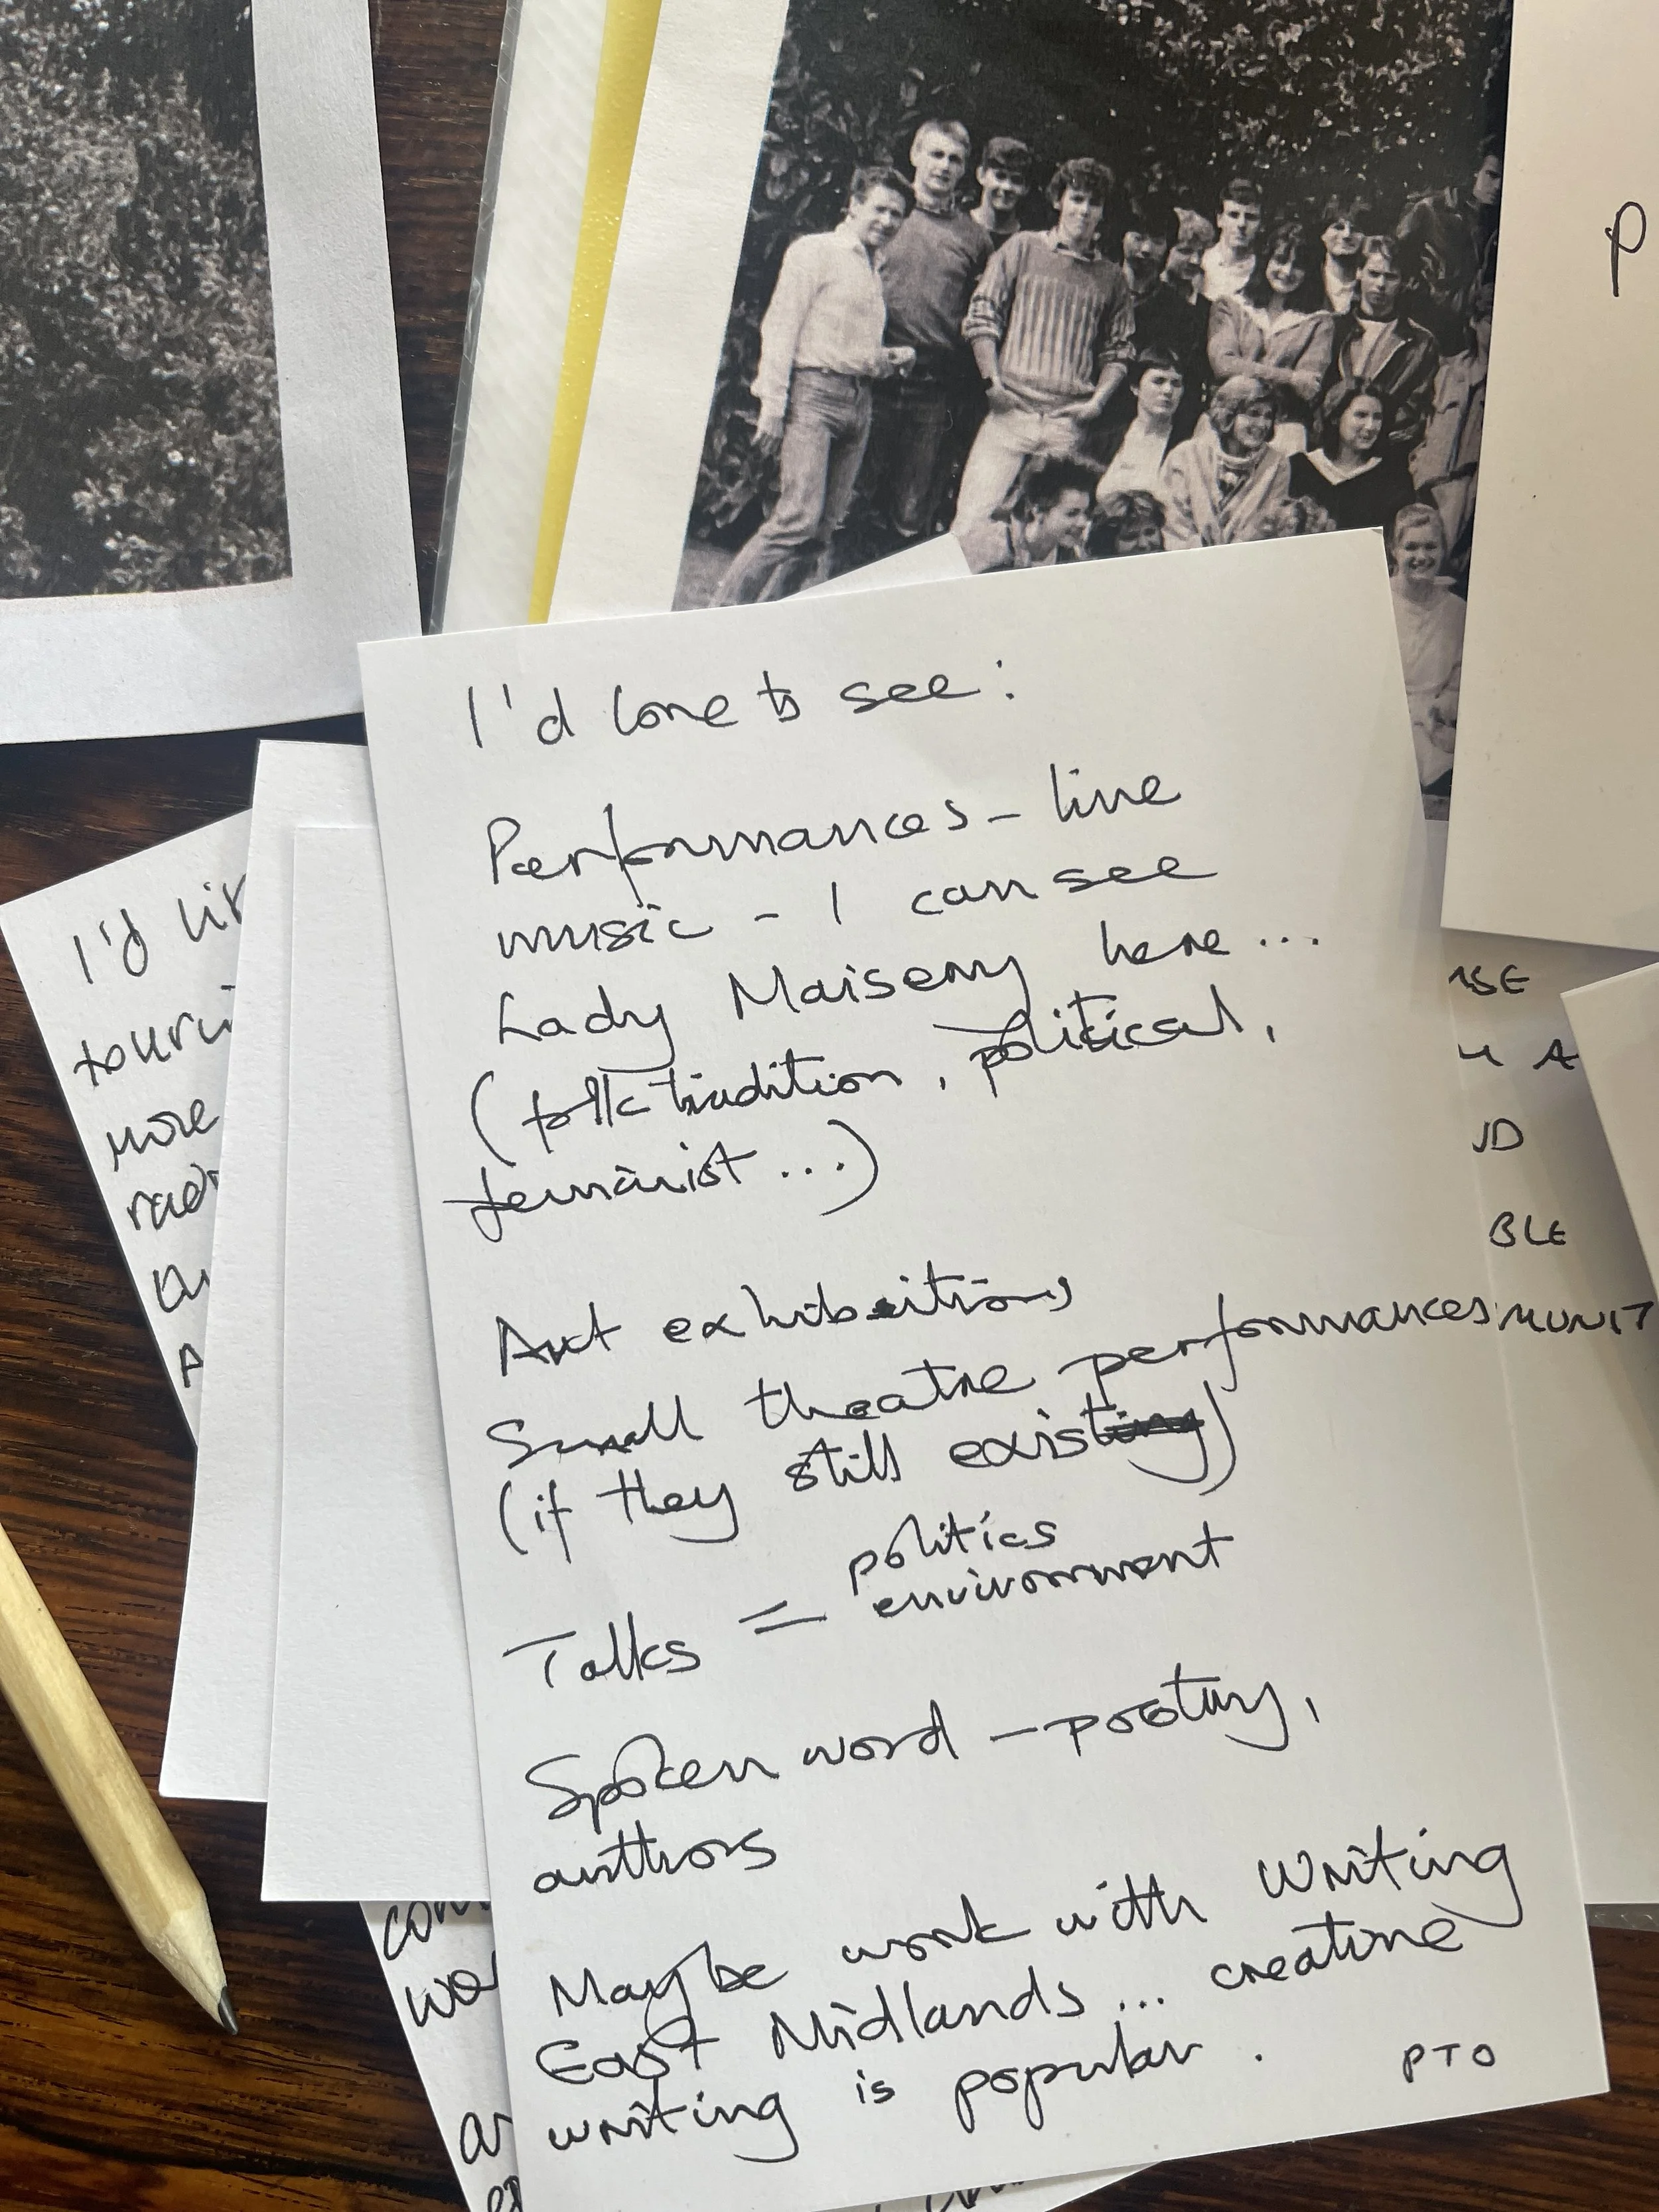 I'd love to see:
Performances - live
music - I can see
Lady Maisery here...
(folk tradition, political,
feminist...)
Art exhibitions
Small theatre performances
(if they still exist)
Talks = politics
environment
Spoken word - poetry,
authors
Maybe work with Writing
East Midlands... creative
writing is popular.
PTO
I'd
more
P
BLE
MUNIT